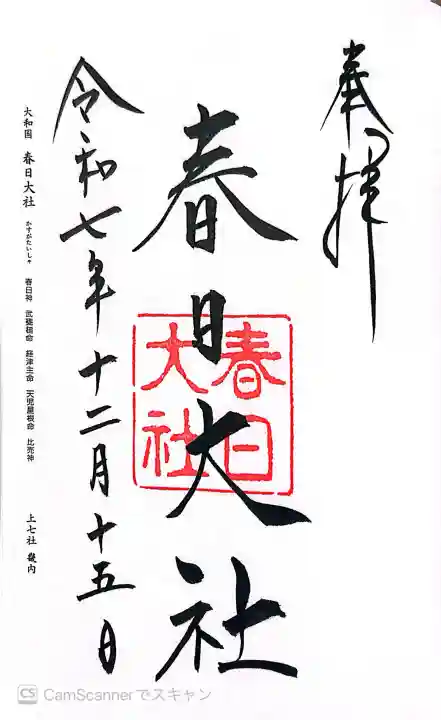 奉拝
春日大社
春日大社
令和七年十二月十五日
大和国 春日大社 かすがたいしゃ 春日神 武甕槌命 経津主命 天児屋根命 比売神 上七社 畿内
CS CamScannerでスキャン